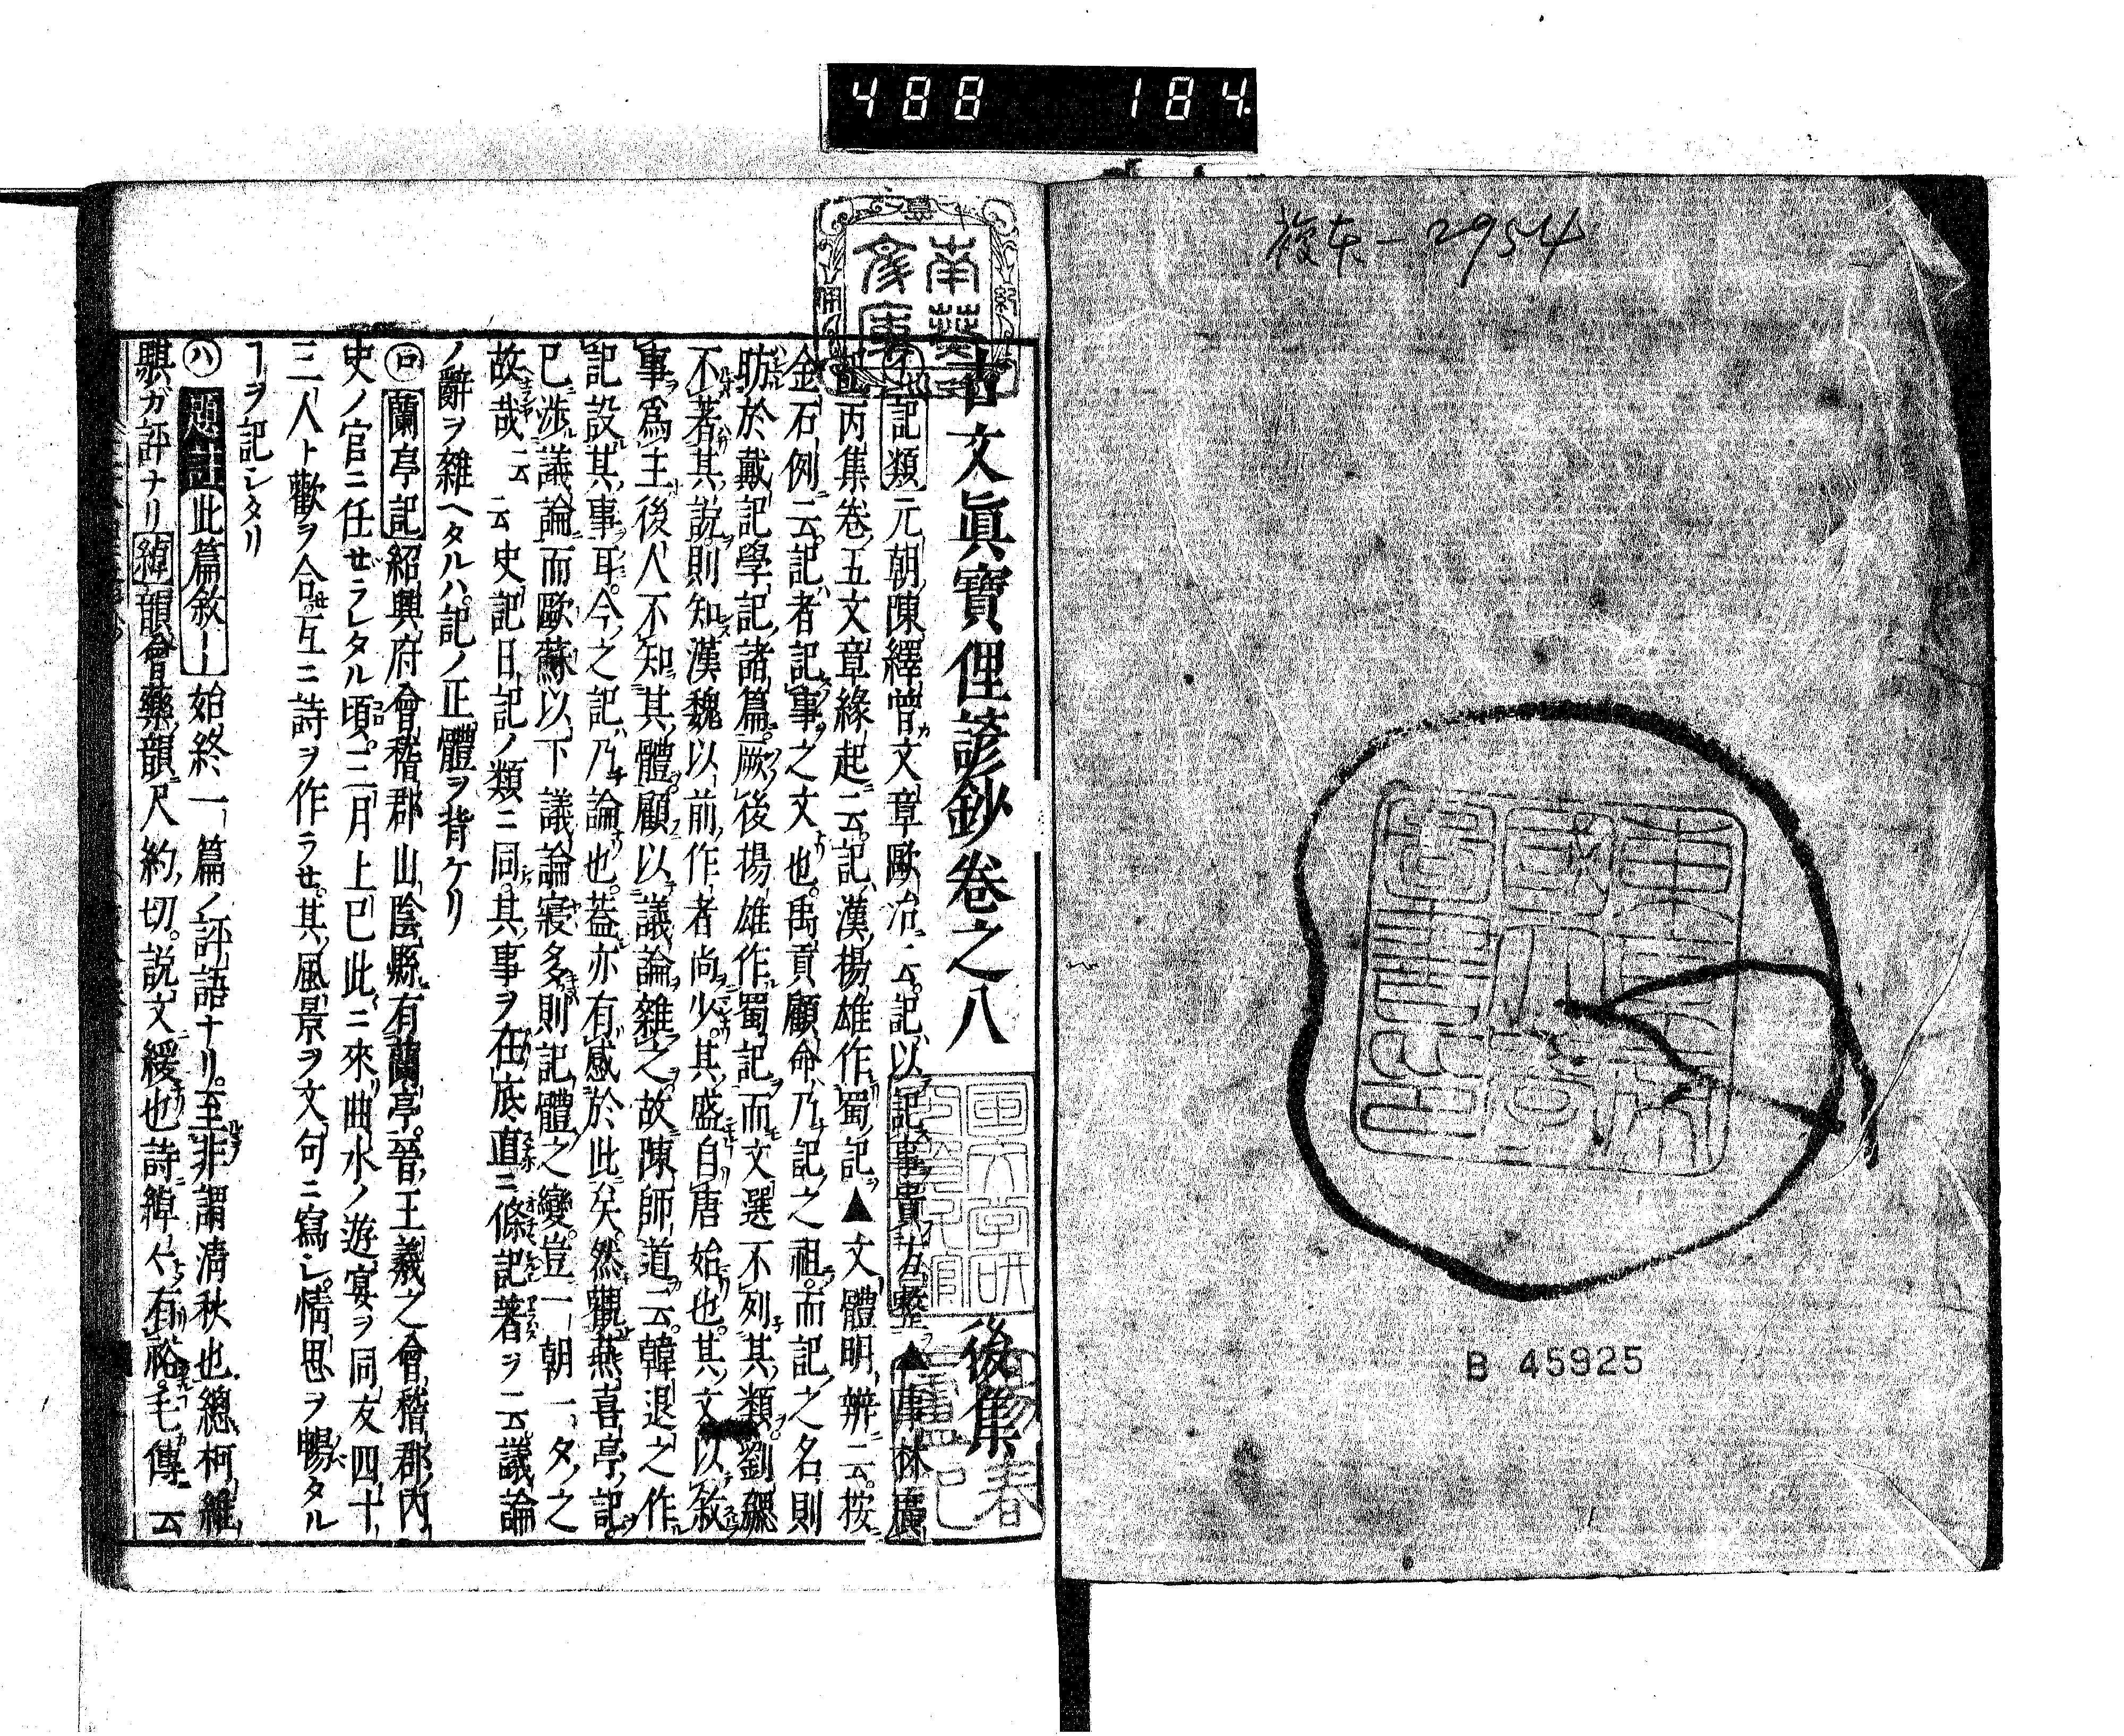 488 184.
複本-2954
B 45925
古文眞寶俚諺鈔卷之八 後集
記類 元朝陳繹曾文章歐冶ニ云。記以記事貴方整▲事林廣
記丙集卷五文章緣起ニ云。記漢揚雄作蜀記▲文體明辨ニ云。按
金石例ニ云。記者記事之文也。禹貢顧命乃記之祖。而記之名則
昉於戴記學記諸篇。厥後揚雄作蜀記而文選不列其類。劉勰
不著其說則知漢魏以前作者尚少。其盛自唐始也。其文以敘
事爲主後人不知其體顧以議論雜之。故陳師道云。韓退之作
記設其事耳。今之記乃論也。蓋亦有感於此矣。然觀燕喜亭記
已涉議論而歐蘇以下議論寖多則記體之變。豈一朝一夕之
故哉云云史記日記ノ類ニ同。其事ヲ在底直ニ條記著ヲ云議論
ノ辭ヲ雜ヘタルハ。記ノ正體ヲ背ケリ
㋺蘭亭記 紹興府會稽郡山陰縣有蘭亭。晉王羲之會稽郡內
史ノ官ニ任ゼラレタル頃。三月上巳此ニ來曲水ノ遊宴ヲ同友四十
三人ト歡ヲ合セ。互ニ詩ヲ作ラセ。其風景ヲ文句ニ寫シ。情思ヲ暢タル
ヿヲ記シタリ
㋩題註此篇敘ー 始終一篇ノ評語ナリ。至非謂淸秋也總柯維
騏ガ評ナリ 綽 韻會藥韻尺約切。說文緩也詩綽々有裕。毛傳ニ云